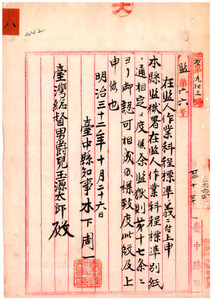 監第六六號
在監人作業科程標準ノ義ニ付上申
本縣監獄署在監人作業科程標準別紙
ノ通相定メ度候条監獄則第十七条ニ
ヨリ御認可相成候様致度此段及上
申候也
明治三十二年十月二十六日
臺中縣知事木下周一
臺灣総督男爵兒玉源太郎殿